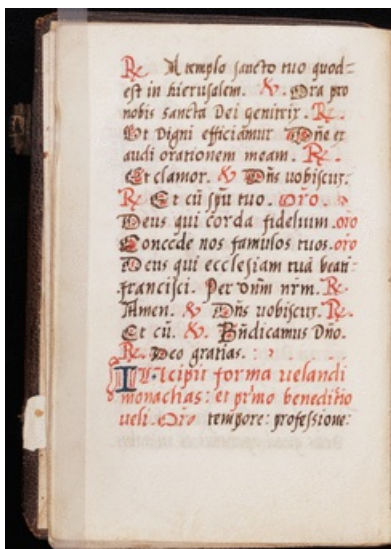 ℟. A templo sancto tuo quod=
est in hierusalem. ℣. Ora pro
nobis sancta Dei genitrix. ℟.
Ut digni efficiamur Dñe ex
audi orationem meam. ℟.
Et clamor. ℣. Dñs uobiscuȝ.
℟. Et cũ spũ tuo. orõ.
Deus qui corda fidelium. orõ
Concede nos famulos tuos. orõ
Deus qui ecclesiam tuã beati
francisci. Per dnm nrm. ℟.
Amen. ℣. Dñs uobiscuȝ. ℟.
Et cũ. ℣. Bñdicamus Dño.
℟. Deo gratias.
Incipit forma uelandi
monachas: et primo benedictio
ueli. Orõ tempore: professione: